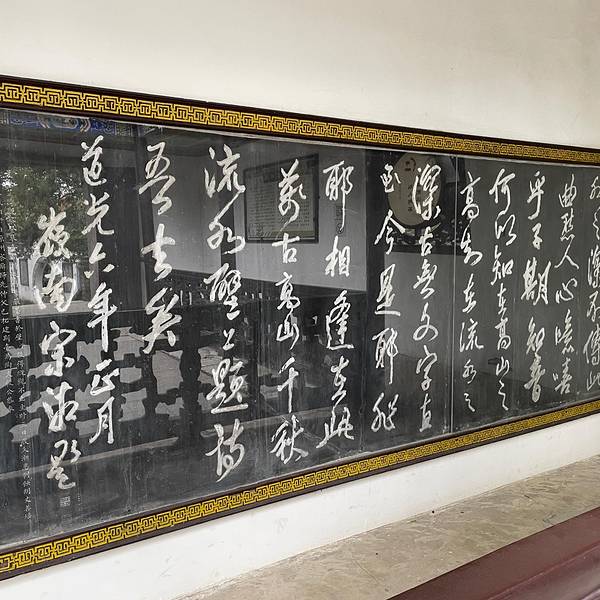 水之深不傳此
曲愁人心噫嘻
乎子期知音
何以知在高山之
高知在流水之
深古無文字直
至今是耶非
耶相逢在此
萬古高山千秋
流水壁上題詩
吾去矣
道光六年正月
嶺南宋湘題